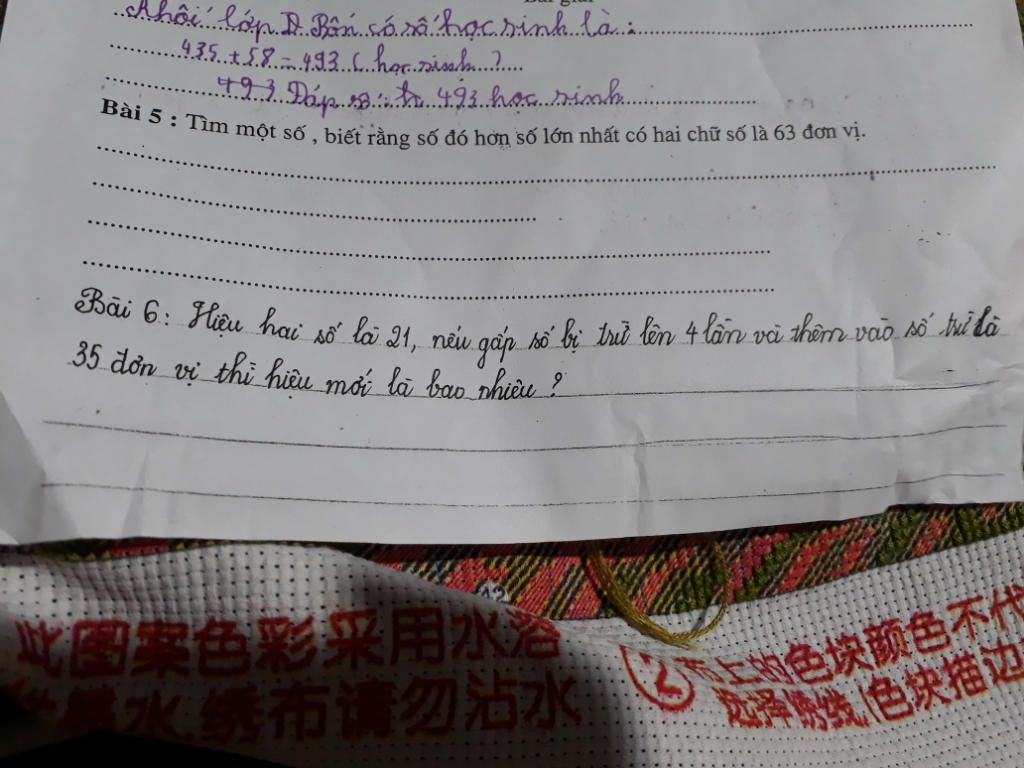 Bài giải
Khối lớp Bốn có số học sinh là:
435 + 58 = 493 ( học sinh )
Đáp số: 493 học sinh
Bài 5 : Tìm một số , biết rằng số đó hơn số lớn nhất có hai chữ số là 63 đơn vị.
Bài 6: Hiệu hai số là 21, nếu gấp số bị trừ lên 4 lần và thêm vào số trừ là
35 đơn vị thì hiệu mới là bao nhiêu ?
此图案色彩采用水浴
水,绣布请勿沾水
② 布上的色块颜色不代
选择绣线,(色块描边